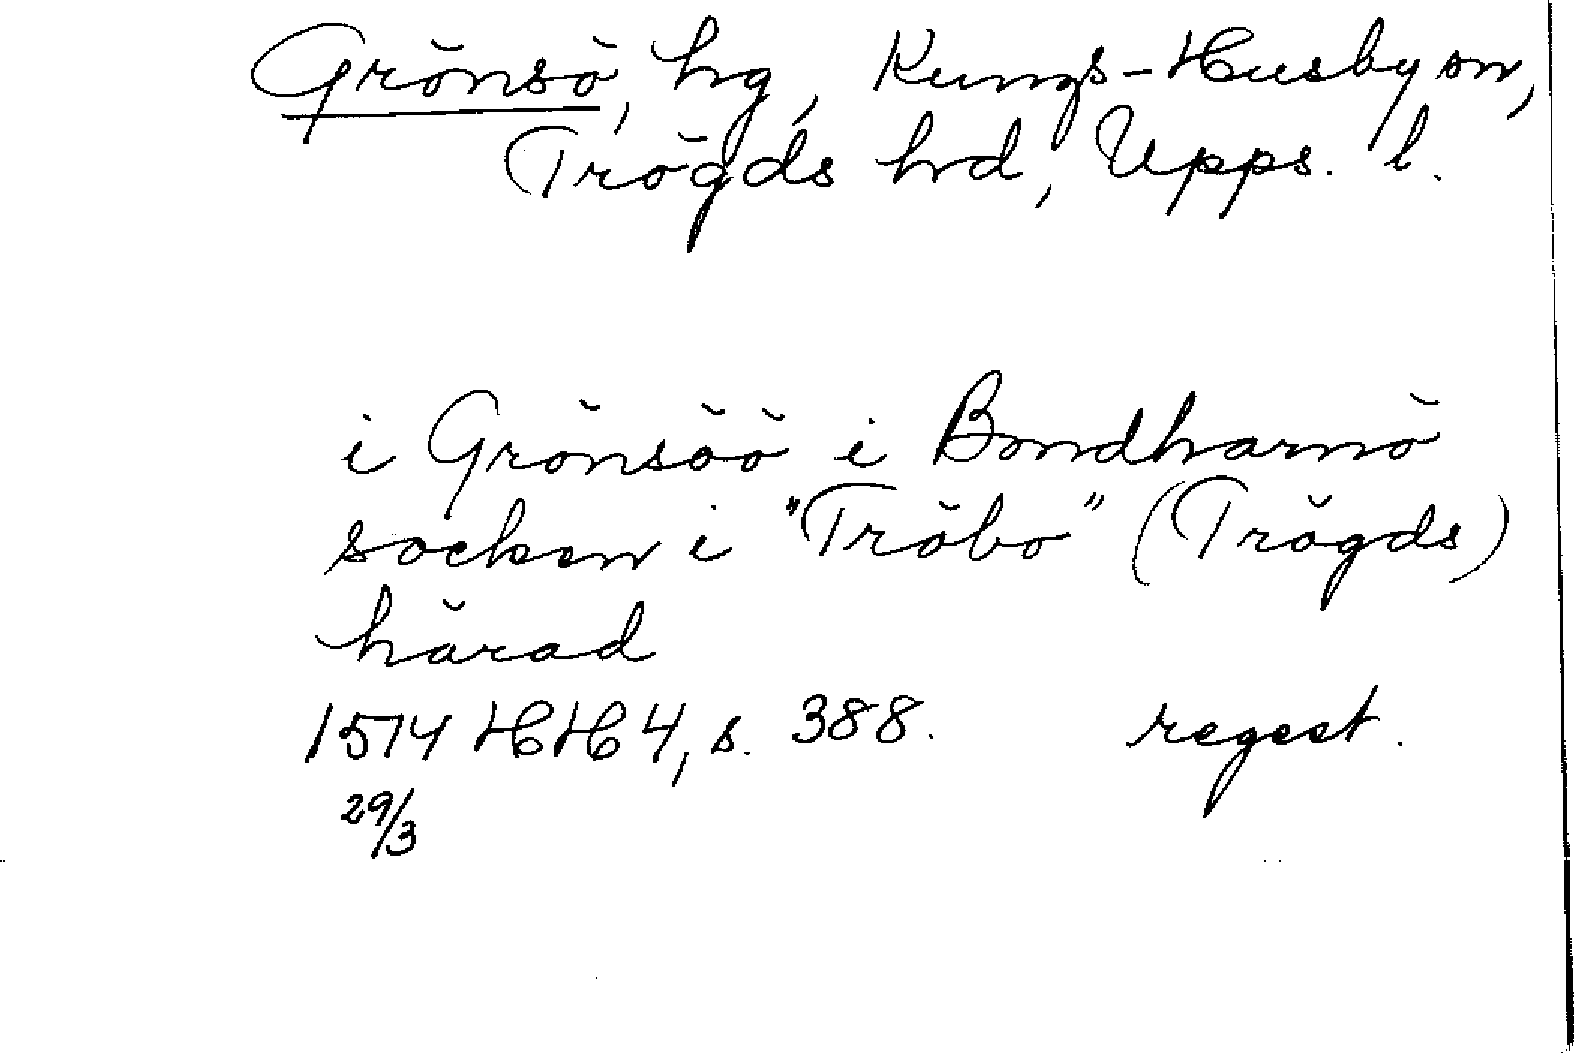 Grönsö, hg, Kungs-Husby sn,
Trögds hd, Upps. l.
i Grönsöö i Bondharnö
socken i "Tröbo" (Trögds)
härad
1514 HH 4, s. 388. regest.
29/3